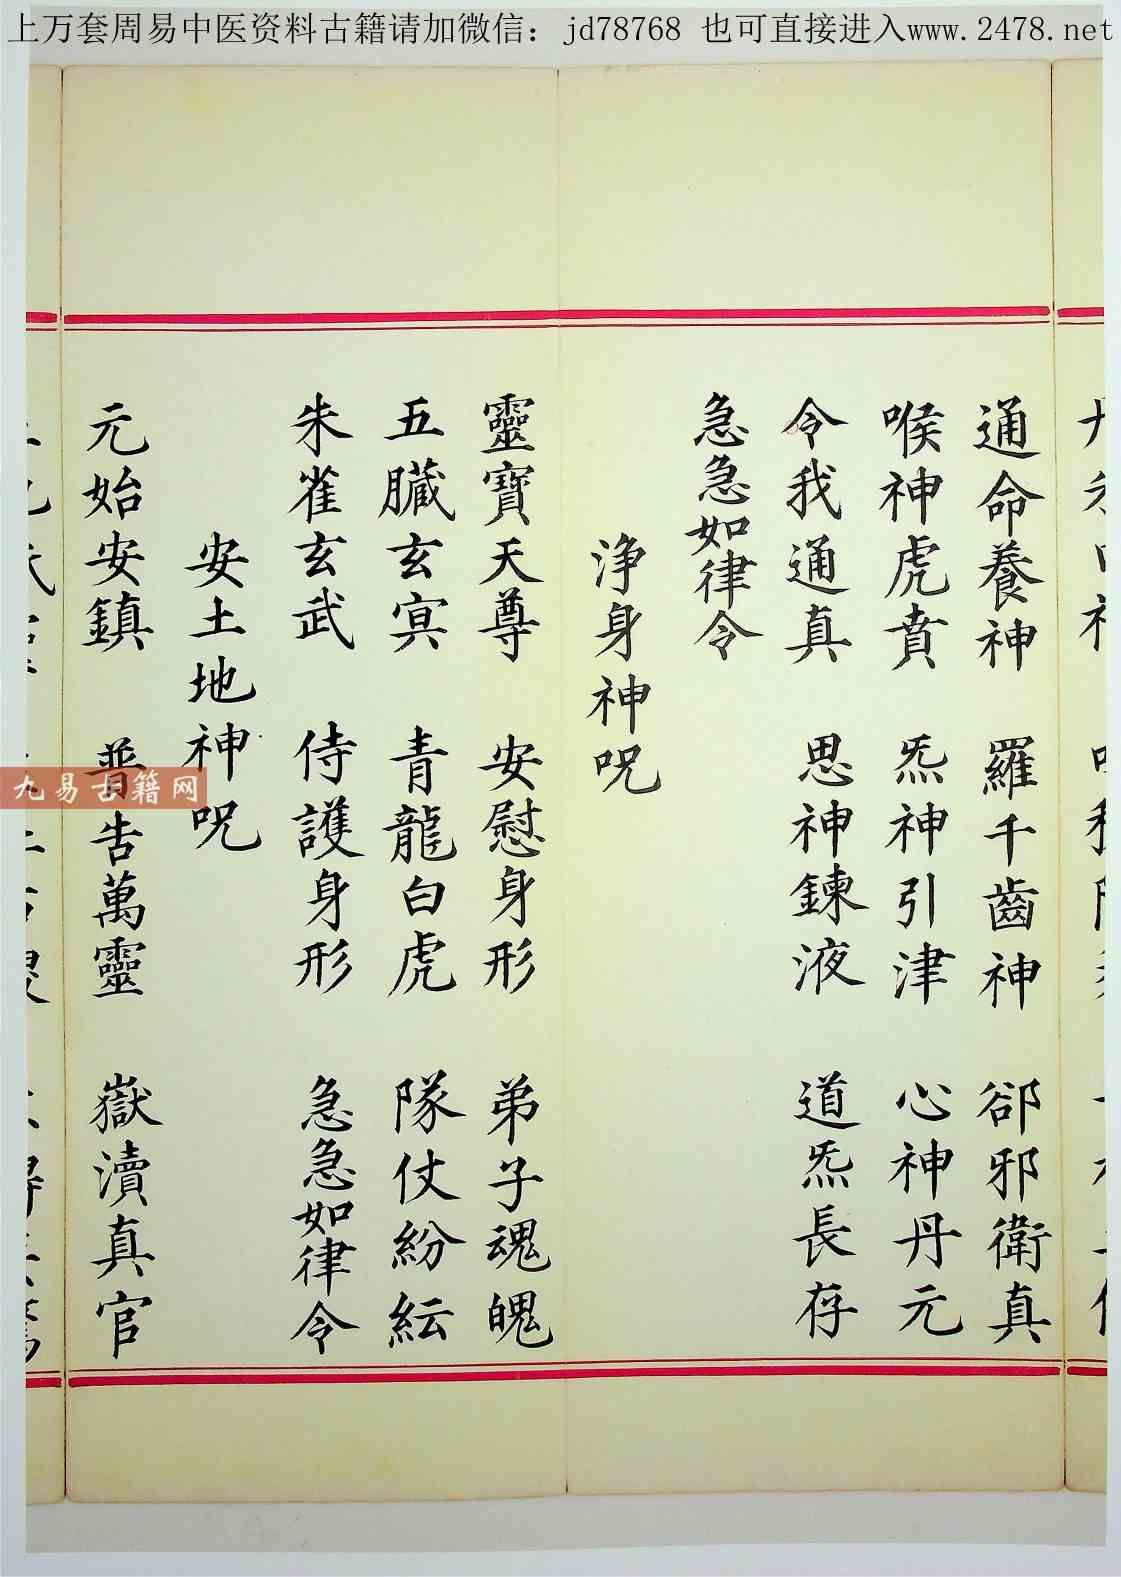 上万套周易中医资料古籍请加微信：jd78768 也可直接进入www.2478.net
通命養神 羅千齒神 郤邪衛真
喉神虎賁 炁神引津 心神丹元
令我通真 思神鍊液 道炁長存
急急如律令
浄身神呪
靈寶天尊 安慰身形 弟子魂魄
五臟玄冥 青龍白虎 隊仗紛紜
朱雀玄武 侍護身形 急急如律令
安土地神呪
元始安鎮 普告萬靈 嶽瀆真官
九易古籍网